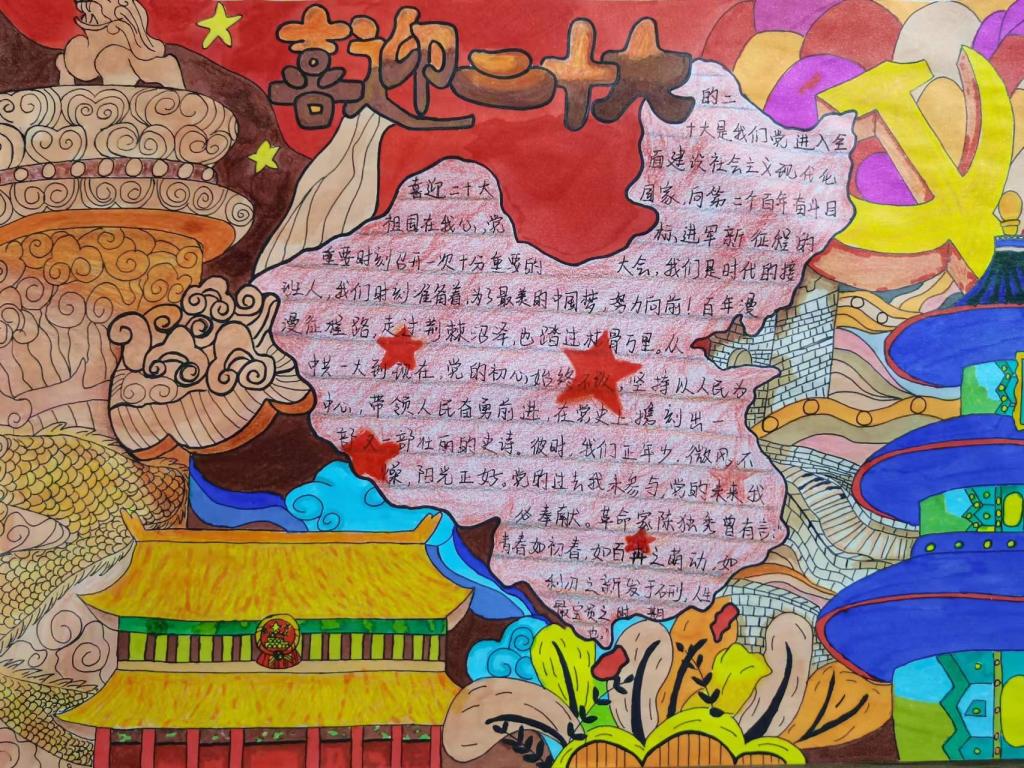 喜迎二十大
的二
十大是我们党进入全
面建设社会主义现代化
国家,向第二个百年奋斗目
标,进军新征程的
喜迎二十大
祖国在我心,党
重要时刻召开一次十分重要的
大会,我们是时代的接
班人,我们时刻准备着,为了最美的中国梦,努力向前!百年漫
漫征程路,走过荆棘沼泽,也踏过枯骨万里。从
中共一大到现在,党的初心始终不改,坚持以人民为
中心,带领人民奋勇前进,在党史上镌刻出一
部又一部壮丽的史诗。彼时,我们正年少,微风不
燥,阳光正好。党的过去我未参与,党的未来我
必奉献。革命家陈独秀曾有言:
青春如初春,如百卉之萌动,如
利刃之新发于硎,人生
最宝贵之时期
也!